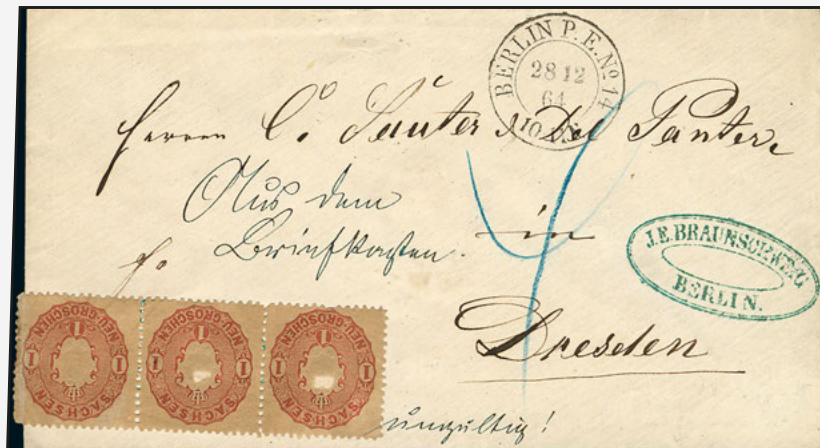 BERLIN P. E. No. 14
28 12
64
Herren C. Sauter & Del Panter,
Aus dem
Briefkasten.
in
fr.
J.E. BRAUNSCHWEIG
BERLIN.
Dresden
1
NEU-GROSCHEN
1 1
SACHSEN
1
NEU-GROSCHEN
1 1
SACHSEN
1
NEU-GROSCHEN
1 1
SACHSEN
ungültig!